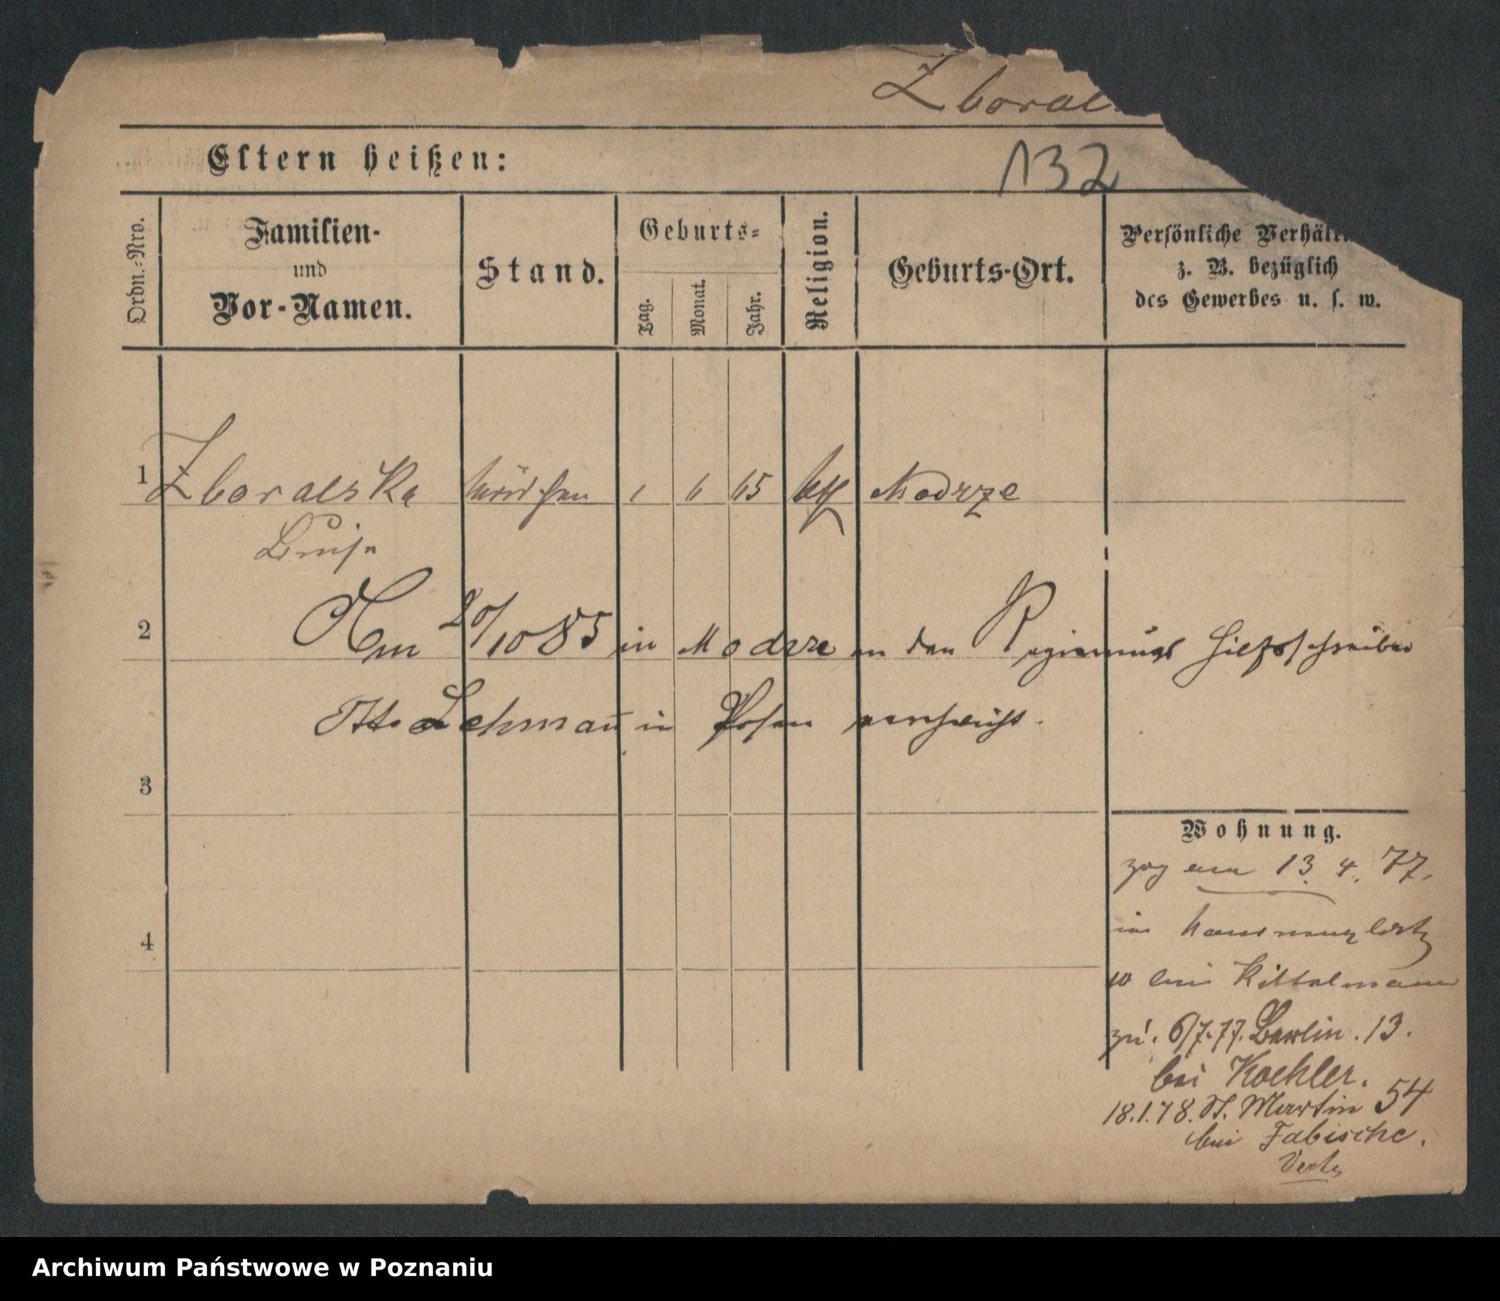 Zboral
132
Eltern heißen:
Ordn.-Nro.
Familien-
und
Vor-Namen.
Stand.
Geburts-
Tag.
Monat.
Jahr.
Religion.
Geburts-Ort.
Persönliche Verhält
z. B. bezüglich
des Gewerbes u. s. w.
1 Zboralska 1 6 65 Modrze
Luise
2 Am 20/10 85 in Modrze an den Regierungs Hilfsschreiber
Otto Lehmann in Posen verheirathet.
3
4
Wohnung.
zog am 13. 4. 77.
bei Kittelmann
6/7.77. Berlin. 13.
bei Koehler.
18.1.78. St. Martin 54
bei Fabische.